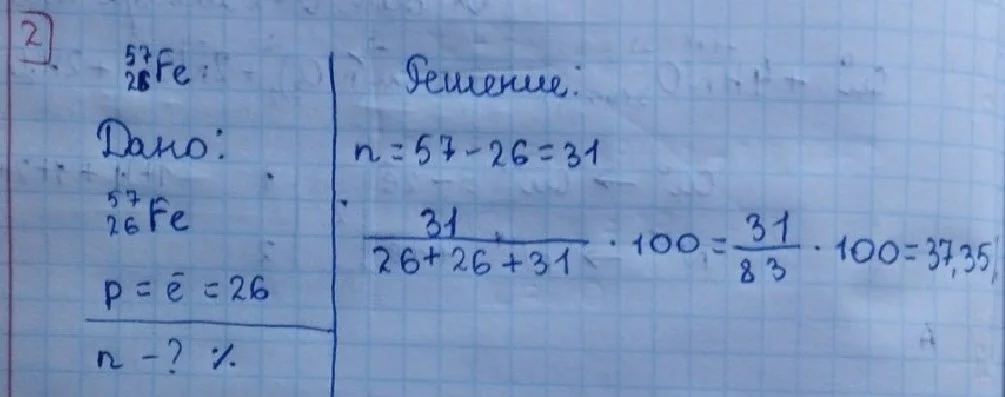 2
⁵⁷₂₆Fe:
Дано:
⁵⁷₂₆Fe
p = ē = 26
n - ? %
Решение:
n = 57 - 26 = 31
31/(26 + 26 + 31) · 100 = 31/83 · 100 = 37,35